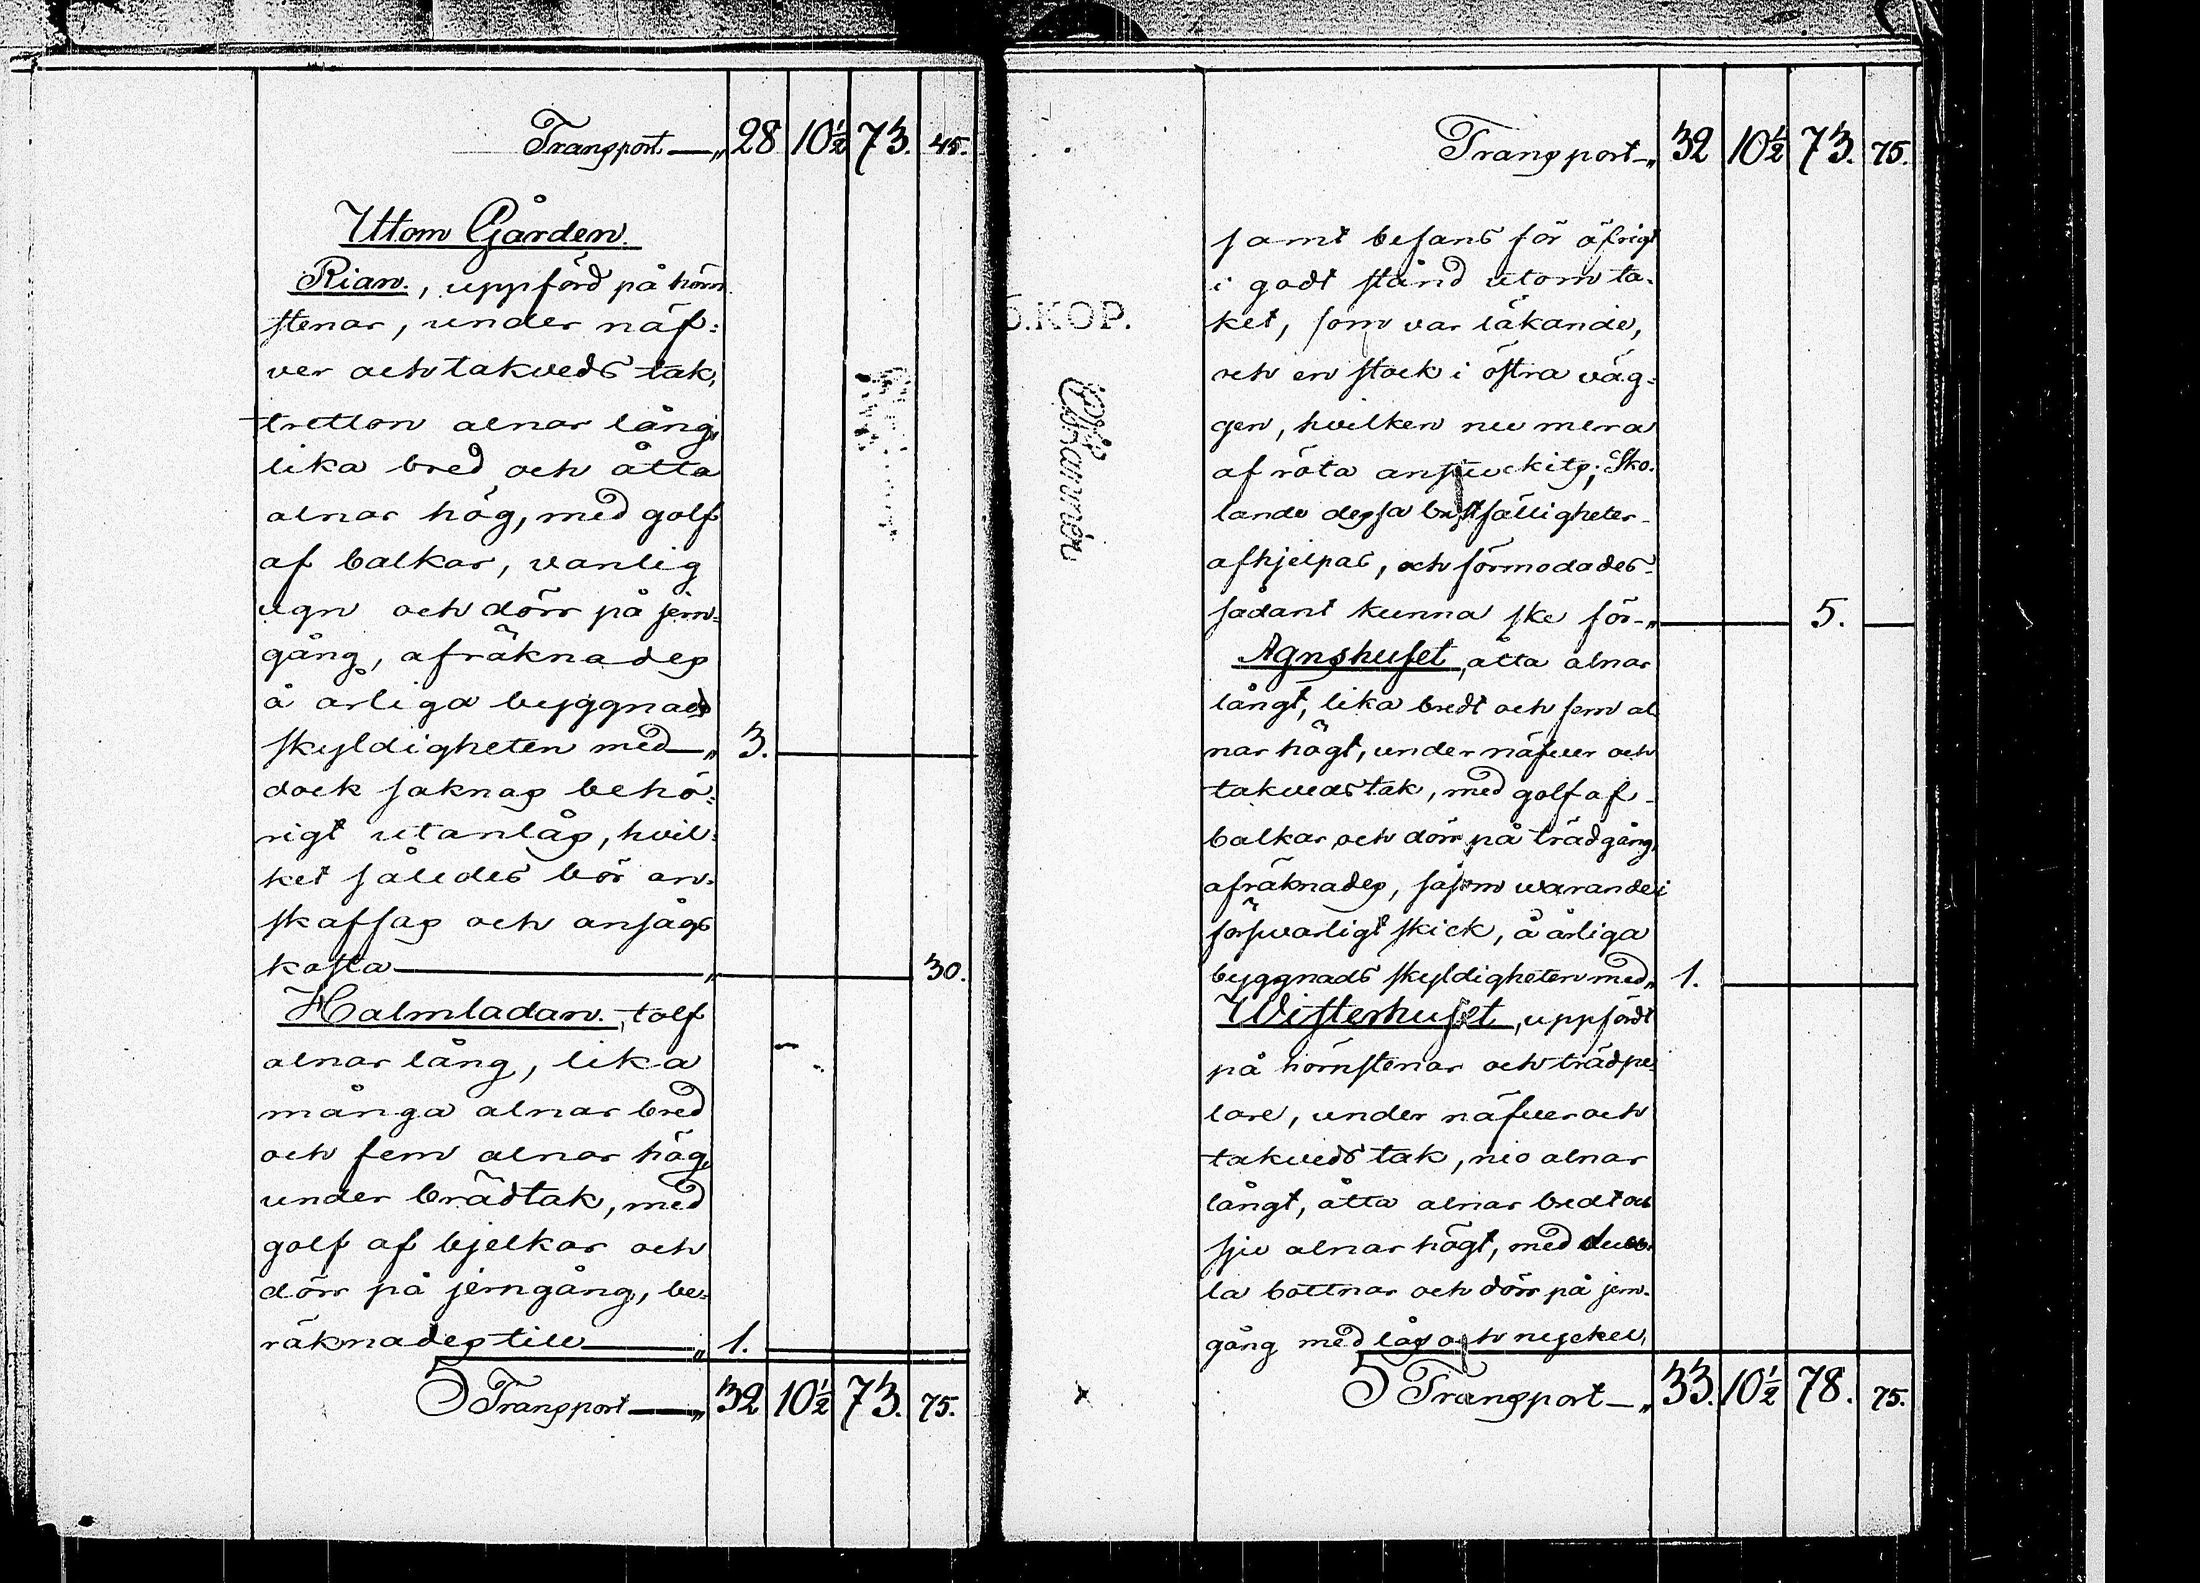 Transport — „ 28 10½ 73. 45.
Uttom Gården.
Rian., uppförd på hörn
stenar, under näf-
ver och takveds tak,
tretton alnar lång,
lika bred och åtta
alnar hög, med golf
af balkar, vanlig
ugn och dörr på jern-
gång, afräknades
å årliga byggnads
skyldigheten med — „ 3.
dock saknas behö-
rigt utanlås, hvil-
ket således bör an-
skaffas och ansågs
kosta — „ 30.
Halmladan., tolf
alnar lång, lika
många alnar bred
och fem alnar hög,
under brädtak, med
golf af bjelkar och
dörr på jerngång, be-
räknades till — „ 1.
Transport — „ 32 10½ 73. 75.
Transport — „ 32 10½ 73. 75.
samt befans för öfrigt
i godt stånd utom ta-
ket, som var läkande,
och en stock i östra väg-
gen, hvilken nu mera
af röta ansuckits; Sko-
lande dessa bristfälligheter
afhjelpas, och förmodades
sådant kunna ske för — „ 5.
Agnshuset, åtta alnar
långt, lika bredt och fem al-
nar högt, under näfver och
takveds tak, med golf af
balkar och dörr på trädgång,
afräknades, såsom warande i
försvarligt skick, å årliga
byggnads skyldigheten med „ 1.
Wisterhuset, uppfördt
på hörnstenar och trädpe-
lare, under näfver och
takveds tak, nio alnar
långt, åtta alnar bredt och
sju alnar högt, med dubb-
la bottnar och dörr på jern-
gång med lås och nyckel,
Transport — „ 33. 10½ 78. 75.
5.KOP.